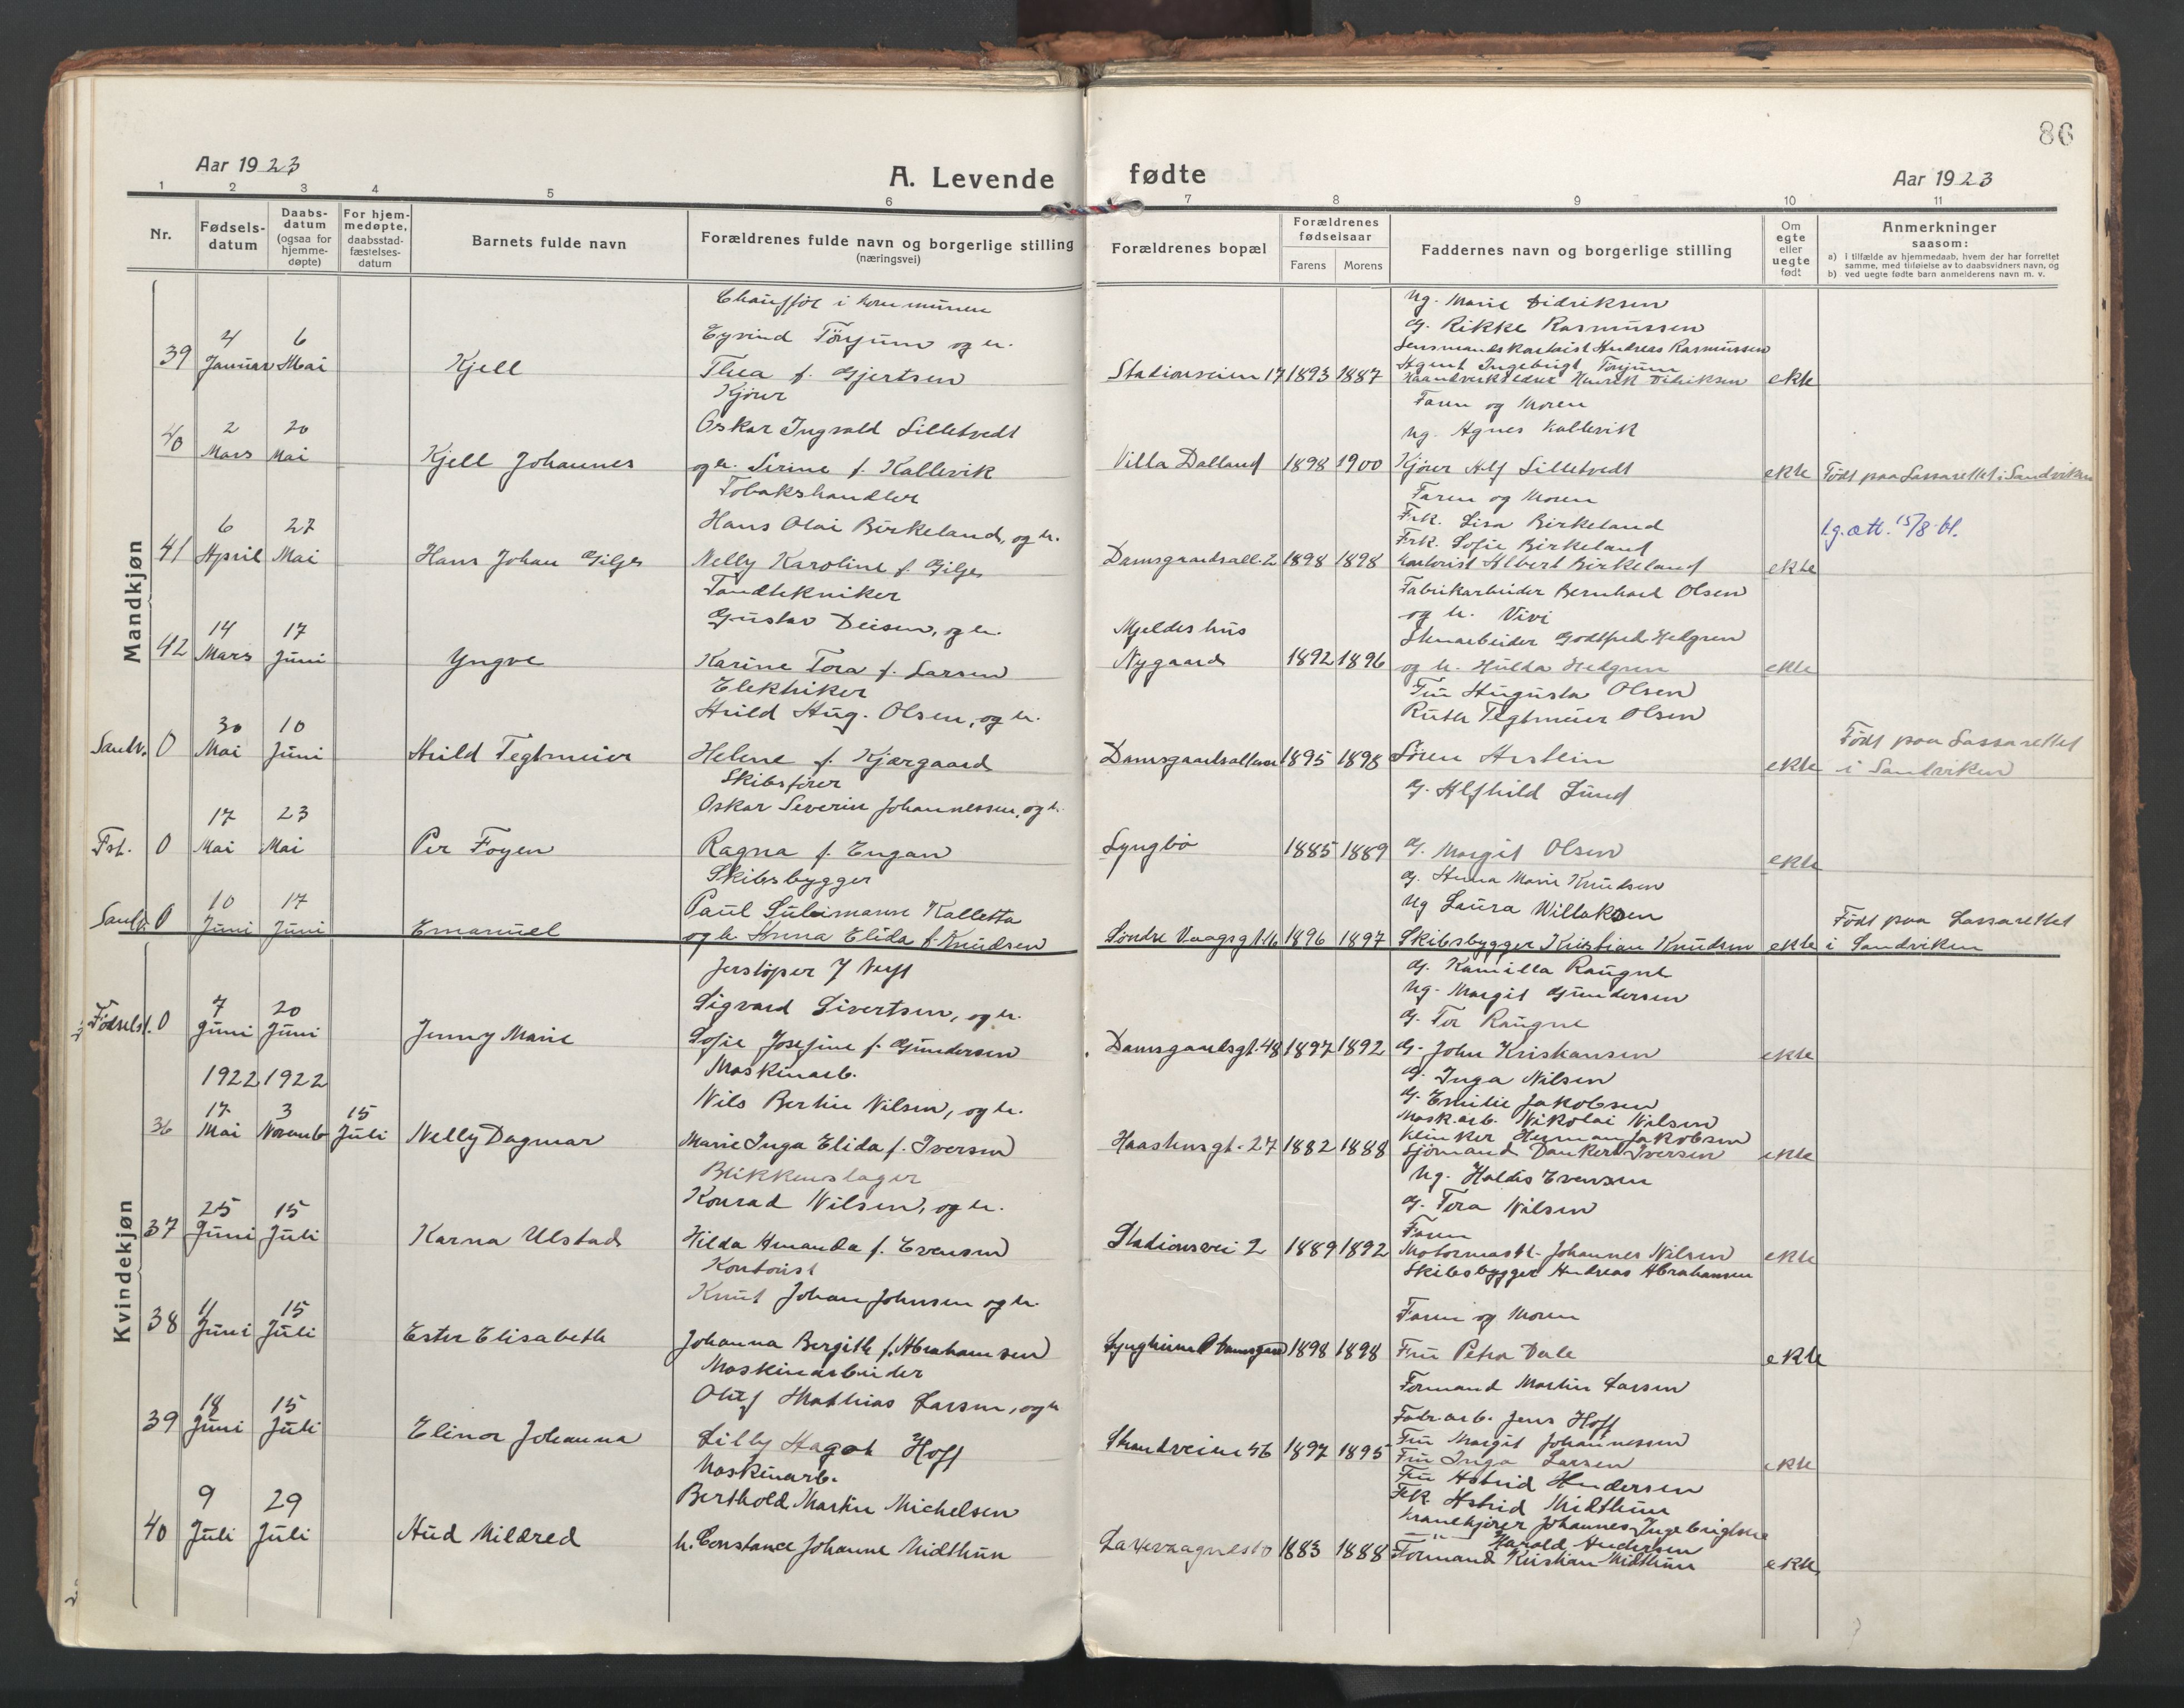 86
Aar 1923
A. Levende
fødte
Aar 1923
1 2 3 4 5 6 7 8 9 10 11
Nr.
Fødsels-
datum
Daabs-
datum
(ogsaa for
hjemme-
døpte)
For hjem-
medøpte,
daabsstad-
fæstelses-
datum
Barnets fulde navn
Forældrenes fulde navn og borgerlige stilling
(næringsvei)
Forældrenes bopæl
Forældrenes
fødselsaar
Farens
Morens
Faddernes navn og borgerlige stilling
Om
egte
eller
uegte
født
Anmerkninger
saasom:
a) i tilfælde av hjemmedaab, hvem der har forrettet
samme, med tilføielse av to daabsvidners navn, og
b) ved uegte fødte barn anmelderens navn m. v.
Mandkjøn
39
4
Januar
6
Mai
Kjell
Chauffør i kommunen
Eyvind Tönjum og h.
Thea f. Gjertsen
Stadionveien 17
1893
1887
Ug. Marie Didriksen
G. Rikke Rasmussen
Lensmandskontorist Andreas Rasmussen
Agent Ingebrigt Tonjum
Haandverksleder Henrik Didriksen
ekte
40
2
Mars
20
Mai
Kjell Johannes
Kjører
Oskar Ingvald Lilletvedt
og h. Serine f. Kallevik
Villa Dalland
1898
1900
Faren og Moren
Ug. Agnes Kallevik
Kjører Alf Lilletvedt
ekte
Født paa Lassarettet i Sandviken
41
6
April
27
Mai
Hans Johan Gilje
Tobakshandler
Hans Olai Birkeland, og h.
Nelly Karoline f. Gilje
Damsgaardsall. 2
1898
1898
Faren og Moren
Frk. Lisa Birkeland
Frk. Sofie Birkeland
Kontorist Albert Birkeland
ekte
l.g. att. 15/8 bl.
42
14
Mars
17
Juni
Yngve
Tandtekniker
Gustav Deisen, og h.
Karine Tora f. Larsen
Mjeldes hus
Nygaard
1892
1896
Fabrikarbeider Bernhard Olsen
og h. Vivi
Stenarbeider Godtfred Hedgren
og h. Hulda Hedgren
ekte
Sandv. 0
30
Mai
10
Juni
Arild Tegtmeier
Elektriker
Arild Aug. Olsen, og h.
Helene f. Kjærgaard
Damsgaardsalleen
1895
1898
Fru Augusta Olsen
Ruth Tegtmeier Olsen
Søren Arstein
ekte
Født paa Lassarettet
i Sandviken
Fst. 0
17
Mai
23
Mai
Per Foyen
Skibsfører
Oskar Severin Johannessen, og h.
Ragna f. Engan
Lyngbø
1885
1889
G. Alfhild Lund
G. Margit Olsen
ekte
Sandv. 0
10
Juni
17
Juni
Emanuel
Skibsbygger
Paul Suleimann Kalletta
og h. Anna Elida f. Knudsen
Søndre Vaagsgt. 16
1896
1897
G. Anna Marie Knudsen
Ug Laura Willaksen
Skibsbygger Kristian Knudsen
ekte
Født paa Lassarettet
i Sandviken
Kvindekjøn
Fødselsst. 0
7
Juni
20
Juni
Jenny Marie
Jernstøper
Sigvard Sivertsen, og h.
Sofie Josefine f. Gundersen
Damsgaardsgt. 48
1897
1892
G. Kamilla Raugne
Ug. Margit Gundersen
G. Tor Raugne
G. John Kristiansen
ekte
36
1922
17
Mai
1922
3
Novemb
15
Juli
Nelly Dagmar
Maskinarb.
Nils Bertin Nilsen, og h.
Marie Inga Elida f. Iversen
Haastensgt. 27
1882
1888
G. Inga Nilsen
G. Emilie Jakobsen
Mask.arb. Nikolai Nilsen
Klinker Herman Jakobsen
Sjømand Dankert Iversen
ekte
37
25
Juni
15
Juli
Karna Ulstad
Blikkenslager
Konrad Nilsen, og h.
Hilda Amanda f. Evensen
Stadionsvei 2
1889
1892
Ug. Haldis Evensen
G. Tora Nilsen
Faren
Motormask. Johannes Nilsen
ekte
38
11
Juni
15
Juli
Ester Elisabeth
Kontorist
Knut Johan Johnsen og h.
Johanna Bergith f. Abrahamsen
Lyngheim Damsgaard
1898
1898
Skibsbygger Andreas Abrahamsen
Faren og Moren
Fru Petra Dale
ekte
39
18
Juni
15
Juli
Elinor Johanna
Maskinarbeider
Oluf Mathias Larsen, og h
Lilly Hagoh Hoff
Strandveien 56
1897
1895
Formand Martin Larsen
Fabr.arb. Jens Hoff
Fru Margit Johannessen
Fru Inga Larsen
ekte
40
9
Juli
29
Juli
Aud Mildred
Maskinarb.
Berthold Martin Michelsen
h. Constance Johanne Midthun
Laksevaagnesto
1883
1888
Fru Astrid Andersen
Frk Astrid Midthun
Krankjører Johannes Ingebrigtsen
—"— Harald Andersen
Formand Kristian Midthun
ekte